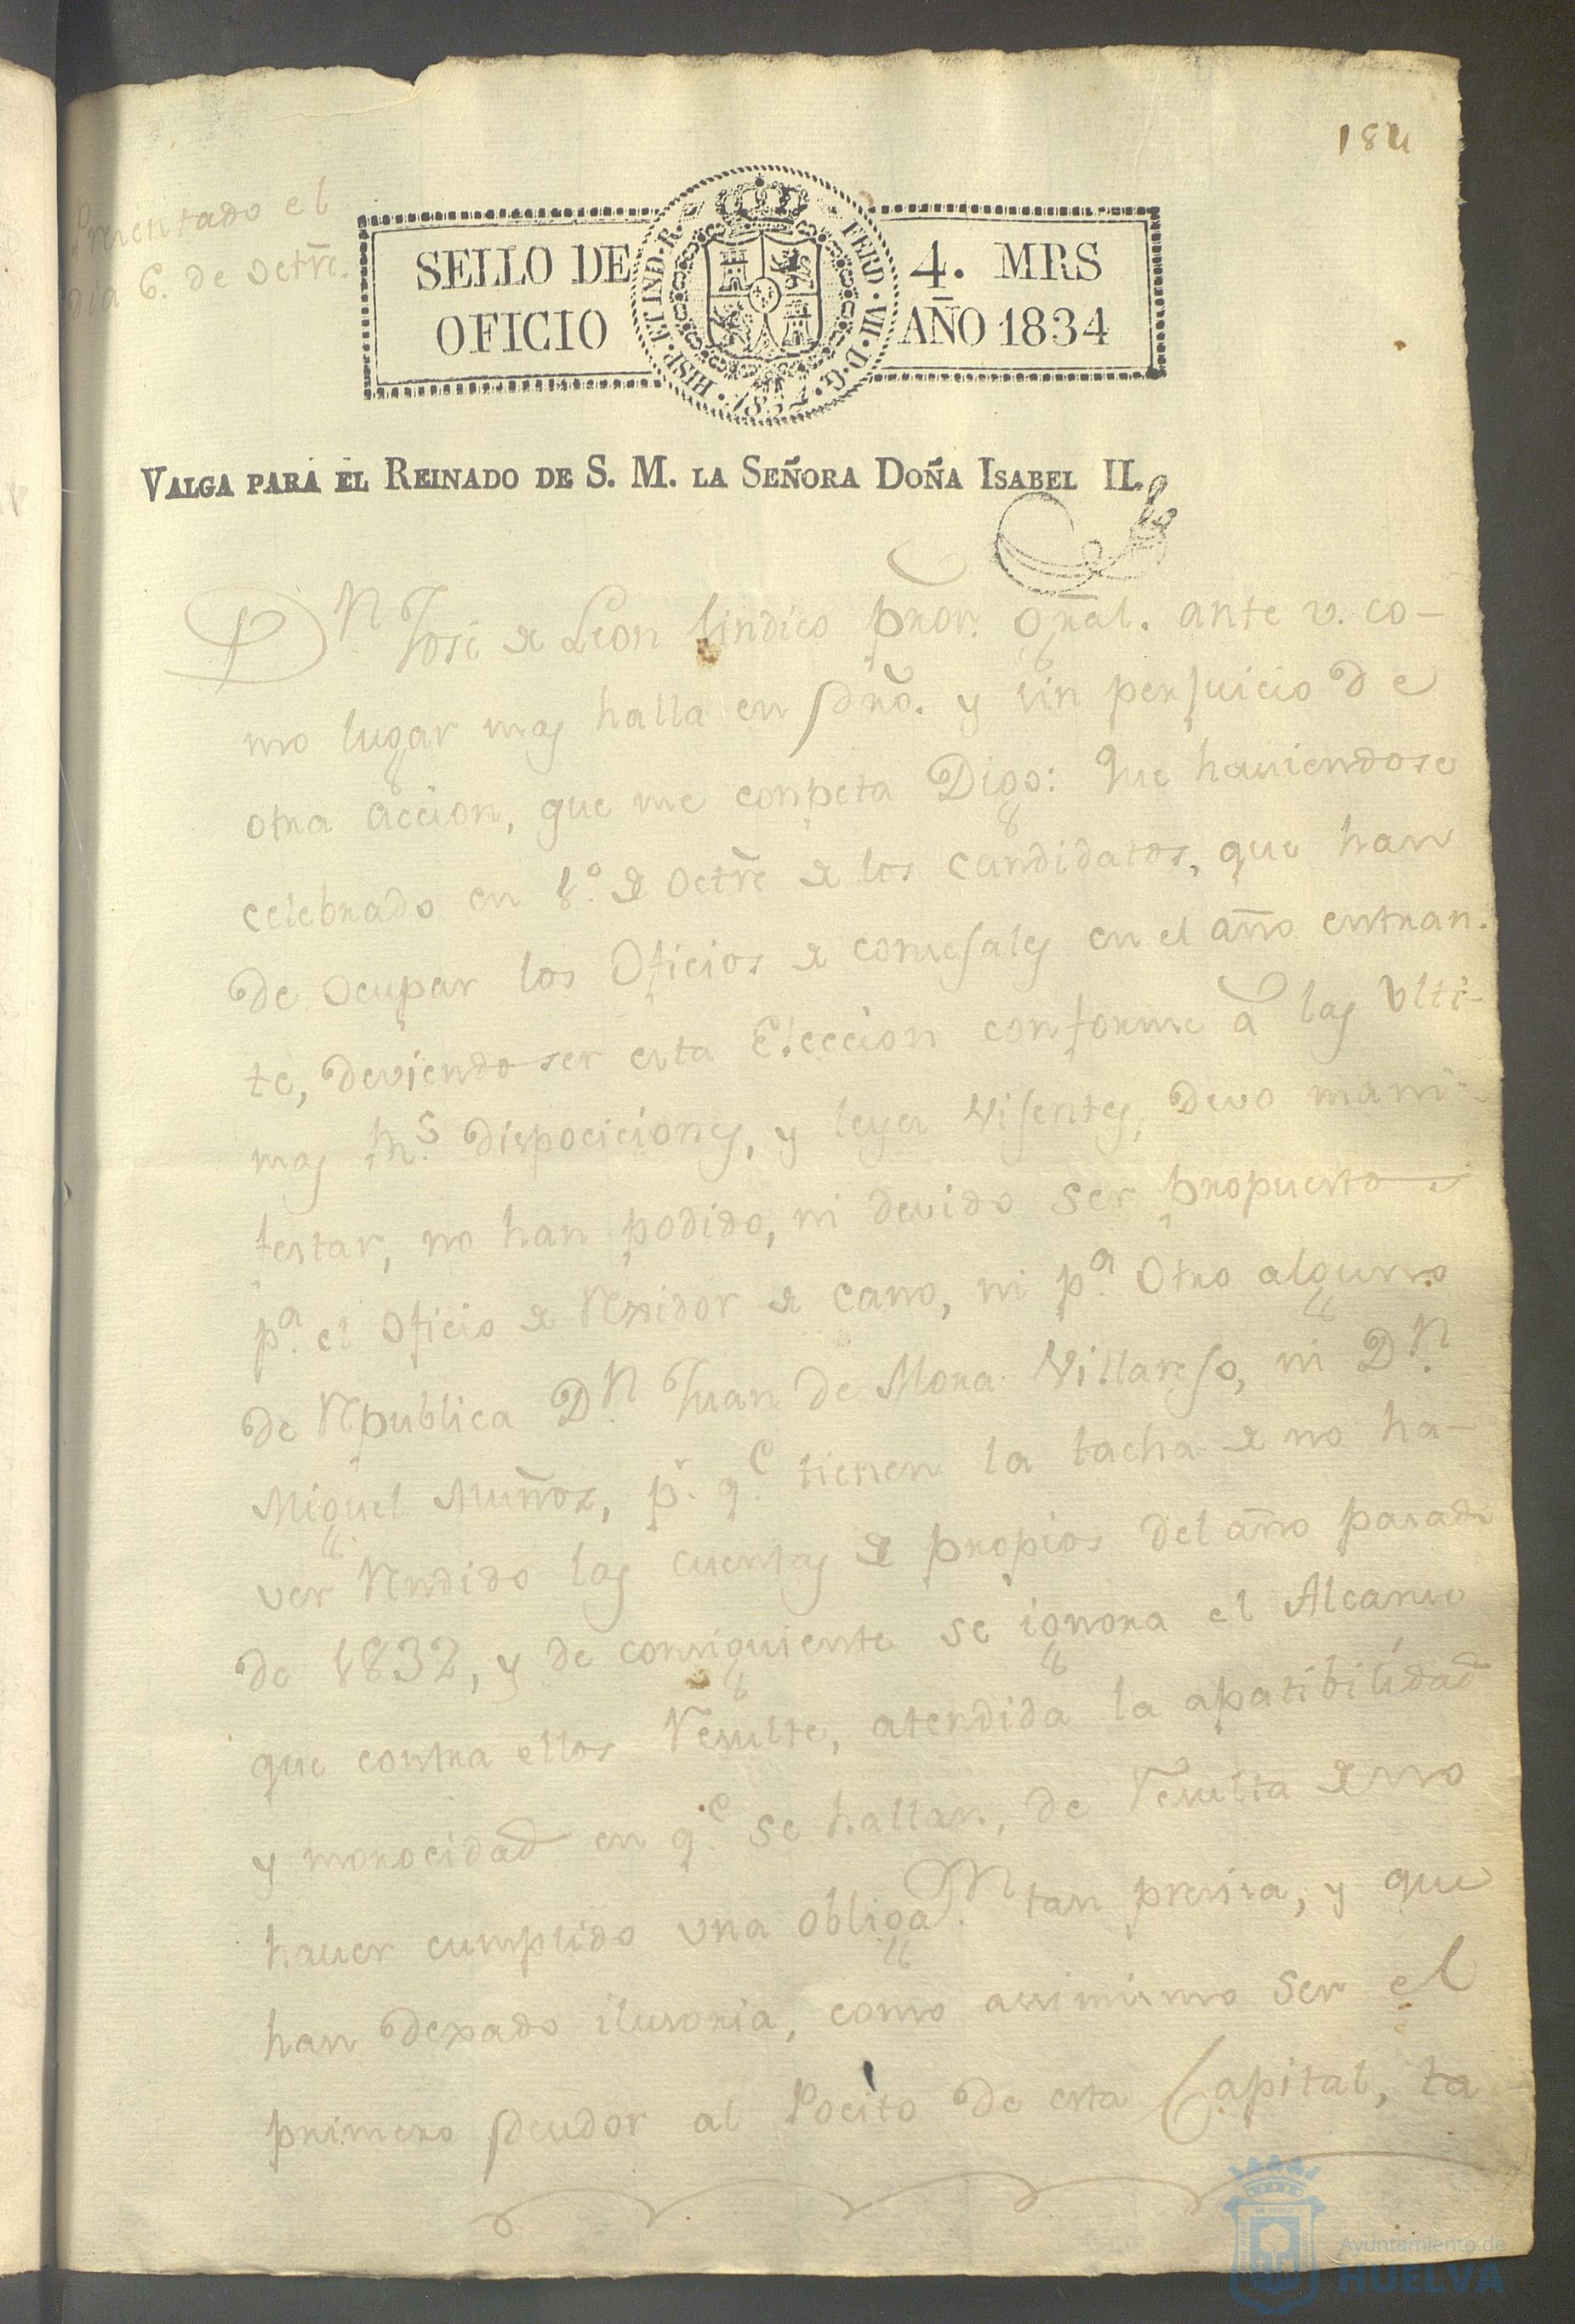 184
Presentado el
dia 6. de Octre.
SELLO DE
OFICIO
HISP. ET IND. R. FERD. VII. D. G.
4. MRS
AÑO 1834
VALGA PARA EL REINADO DE S. M. LA SEÑORA DOÑA ISABEL II.
Dn. José de Leon Sindico Pror. Gral. ante v. co-
mo lugar mas halla en dro. y sin perjuicio de
otra accion, que me conpeta Digo: Que haviendose
celebrado en 1º. de Octre de los candidatos, que han
de ocupar los Oficios de consejales en el año entran-
te, deviendo ser esta Eleccion conforme à las Ulti-
mas rs. dispociciones, y leyes vijentes, devo mani-
festar, no han podido, ni devido ser propuestos
pa. el oficio de Rexidor de cano, ni pa. Otro alguno
de Republica Dn. Juan de Mora Villarejo, ni Dn.
Miguel Muñoz, pr. qe. tienen la tacha de no ha-
ver Rendido las cuentas de propios del año pasado
de 1832, y de consiguiente se ignora el Alcance
que contra ellos Resulte, atendida la apatibilidad
y morocidad en qe. se hallan, de Resulta de no
haver cumplido una obligan. tan precisa, y que
han dexado ilusoria, como asimismo ser el
primero deudor al Pocito de esta Capital, ta
Ayuntamiento de
HUELVA